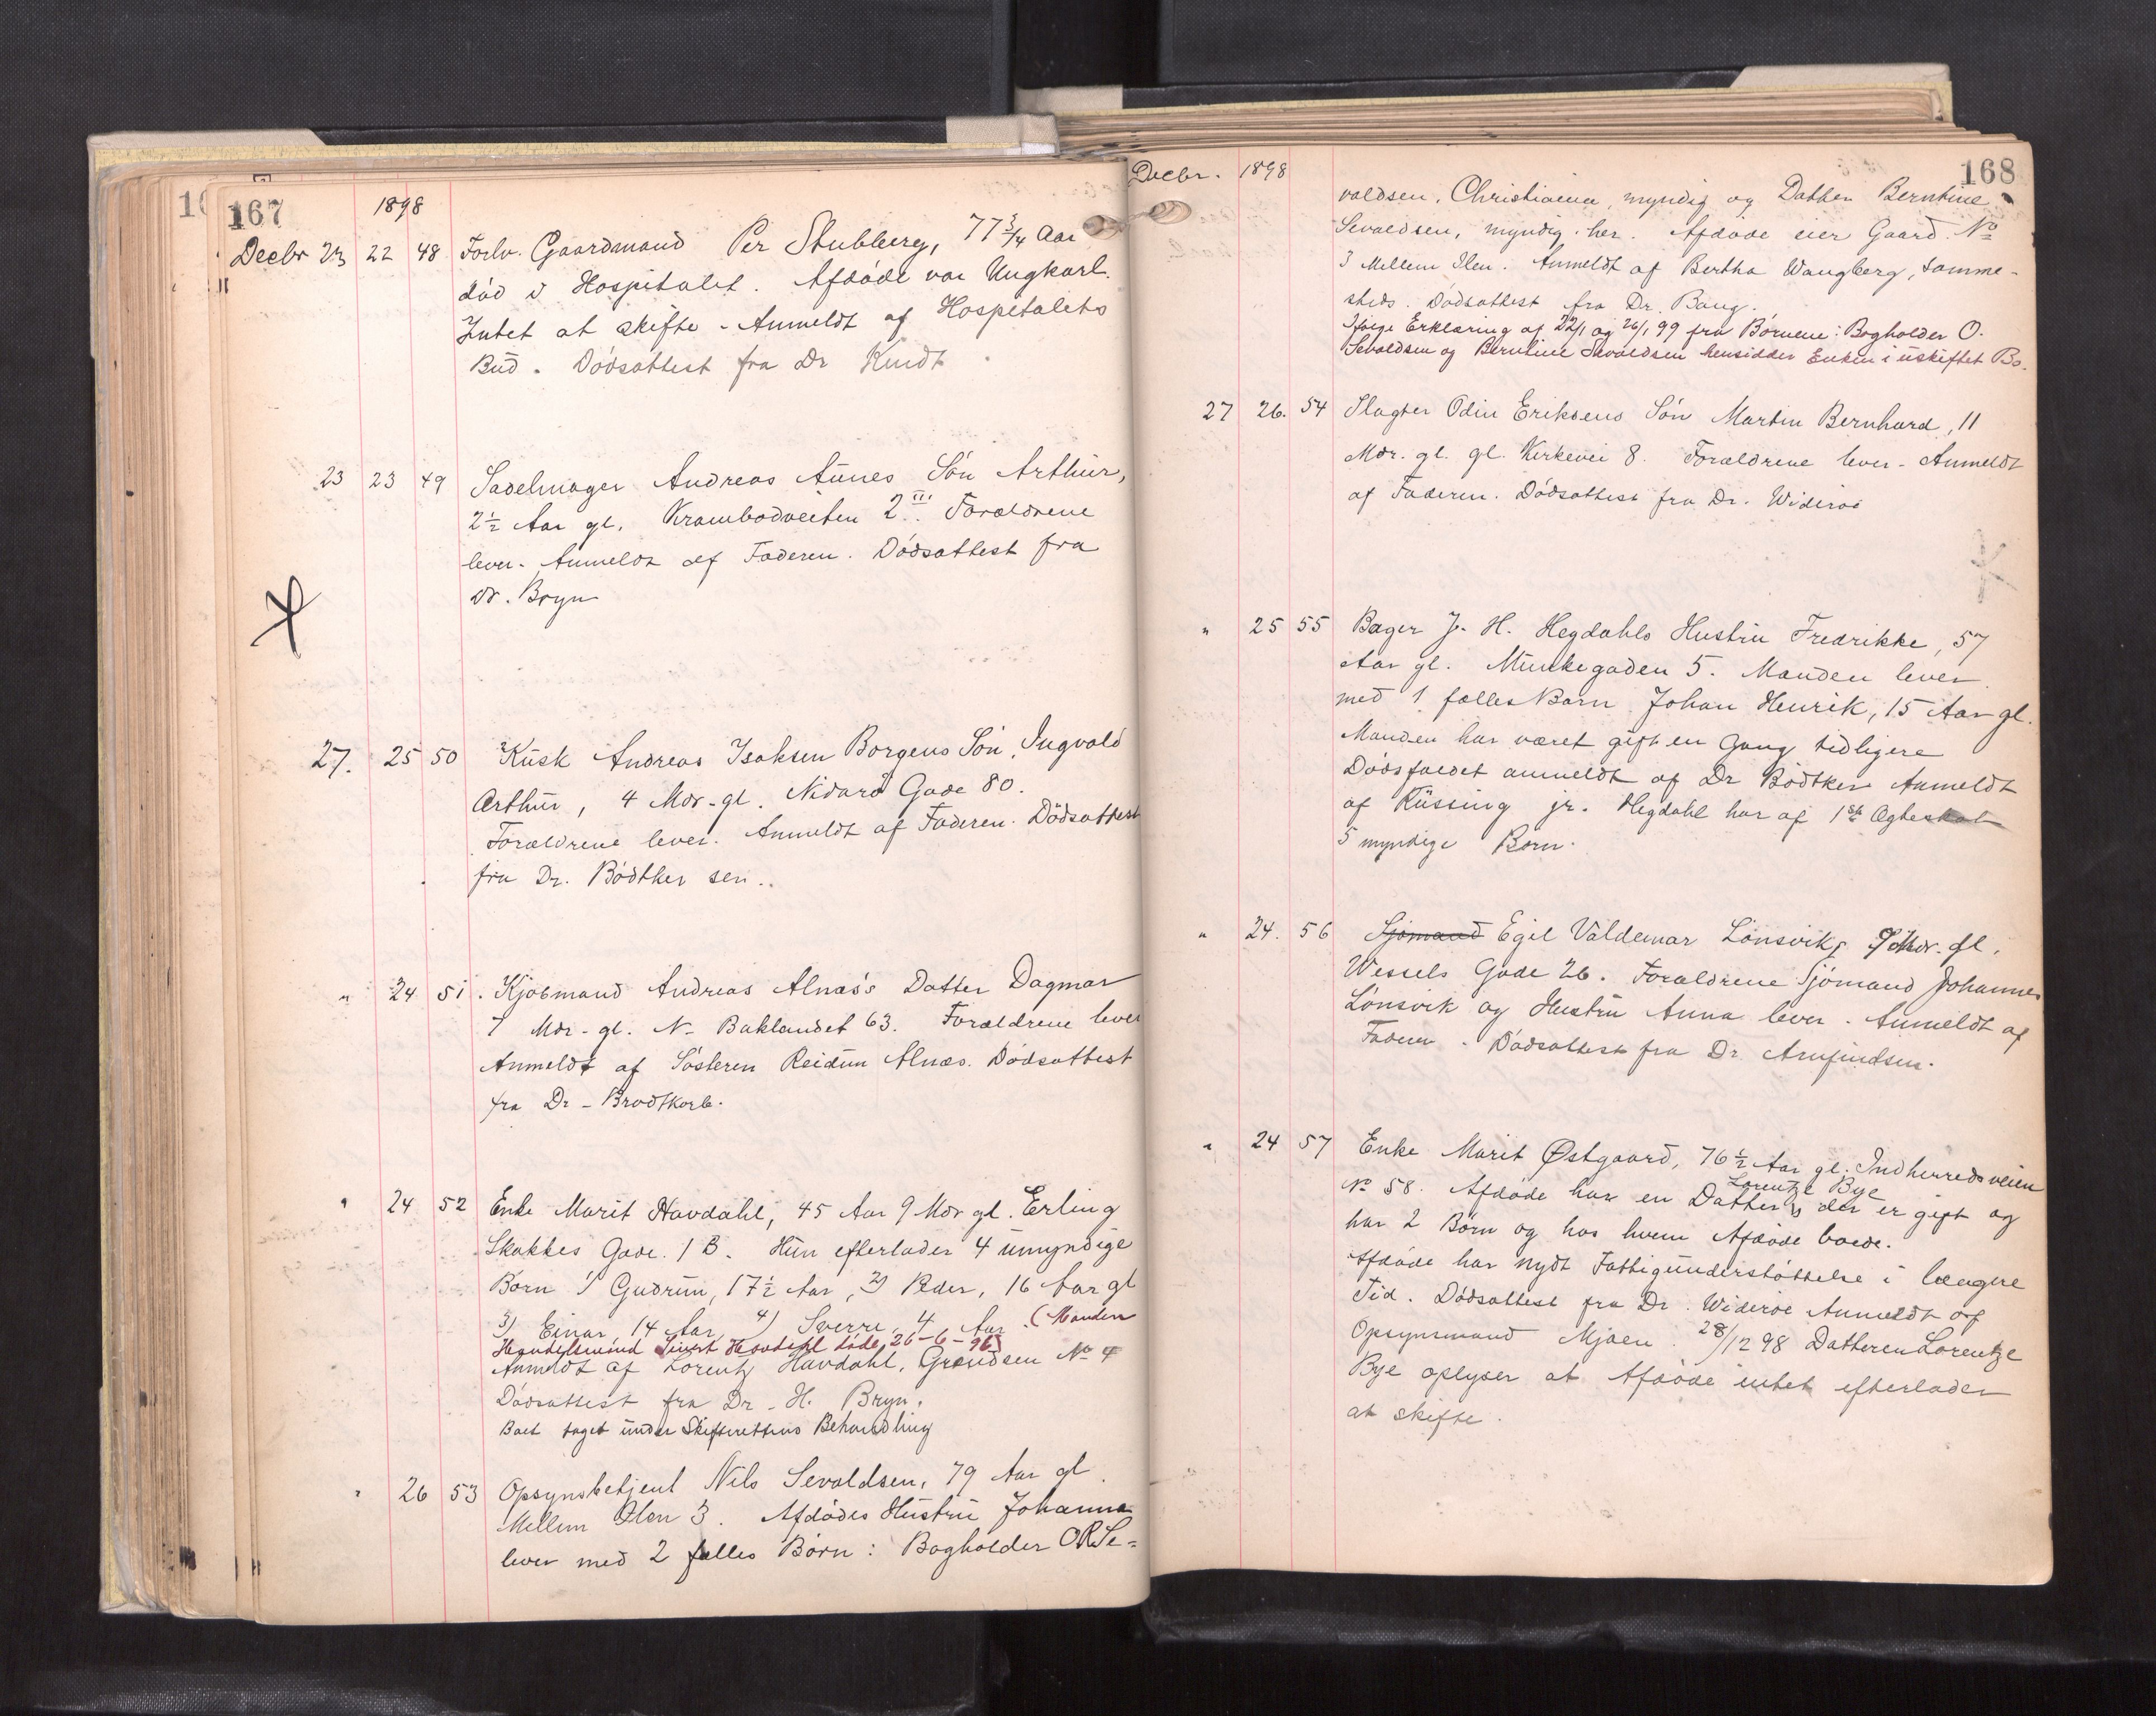 167
1898
Decbr 23 22 48 Forlv. Gaardmand Per Stubberg, 77 3/4 Aar
død i Hospitalet. Afdøde var Ungkarl.
Intet at skifte - Anmeldt af Hospitalets
Bud. Dødsattest fra Dr Kindt
23 23 49 Sadelmager Andreas Aunes Søn Arthur,
2½ Aar gl. Krambodveiten 2 III. Forældrene
lever. Anmeldt af Faderen. Dødsattest fra
Dr. Bryn
27. 25 50 Kusk Andreas Isaksen Borgens Søn, Ingvald
Arthur, 4 Mdr. gl. Nidarø Gade 80.
Forældrene lever. Anmeldt af Faderen. Dødsattest
fra Dr. Bødtker sen.
" 24 51. Kjøbmand Andreas Alnæs's Datter Dagmar
7 Mdr. gl. N. Baklandet 63. Forældrene lever
Anmeldt af Søsteren Reidun Alnæs. Dødsattest
fra Dr. Brodtkorb.
" 24 52 Enke Marit Havdahl, 45 Aar 9 Mdr gl. Erling
Skakkes Gade 1 B. Hun efterlader 4 umyndige
Børn 1) Gudrun, 17½ Aar, 2) Peder, 16 Aar gl
3) Einar, 14 Aar, 4) Sverre, 4 Aar. (Manden
Handelsmand Sivert Havdahl døde 26-6-96)
Anmeldt af Lorentz Havdahl, Grændsen No 4
Dødsattest fra Dr. H. Bryn.
Boet taget under Skifterettens Behandling
" 26 53 Opsynsbetjent Nils Sevaldsen, 79 Aar gl.
Mellem Ilen 3. Afdødes Hustru Johanna
lever med 2 fælles Børn: Bogholder O R Se=
Decbr. 1898
168
valdsen, Christiania, myndig og Datter Berntine
Sevaldsen, myndig. her. Afdøde eier Gaard No
3 Mellem Ilen. Anmeldt af Bertha Wangberg, samme-
steds. Dødsattest fra Dr. Bang.
Ifølge Erklæring af 22/1 og 26/1 99 fra Børnene: Bogholder O.
Sevaldsen og Berntine Sevaldsen hensidder Enken i uskiftet Bo.
27 26. 54 Slagter Odin Eriksens Søn Martin Bernhard, 11
Mdr. gl. gl. Kirkevei 8. Forældrene lever. Anmeldt
af Faderen. Dødsattest fra Dr. Widerøe
" 25 55 Bager J. H. Hegdahls Hustru Fredrikke, 57
Aar gl. Munkegaden 5. Manden lever
med 1 fælles Barn Johan Henrik, 15 Aar gl.
Manden har været gift en Gang tidligere
Dødsfaldet anmeldt af Dr Bødtker Anmeldt
af Küssing jr. Hegdahl har af 1ste Ægteskab
5 myndige Børn.
" 24. 56 Sjømand Egil Valdemar Lønsvik, 9 Mdr. gl.
Wessels Gade 26. Forældrene Sjømand Johannes
Lønsvik og Hustru Anna lever. Anmeldt af
Faderen. Dødsattest fra Dr. Arnfindsen.
" 24 57 Enke Marit Østgaard, 76½ Aar gl. Indherredsveien
Lorentze Bye
No 58. Afdøde har en Datter, der er gift og
har 2 Børn og hos hvem Afdøde boede.
Afdøde har nydt Fattigunderstøttelse i længere
Tid. Dødsattest fra Dr. Widerøe Anmeldt af
Opsynsmand Mjøen. 28/12 98 Datteren Lorentze
Bye oplyser at Afdøde intet efterlader
at skifte.